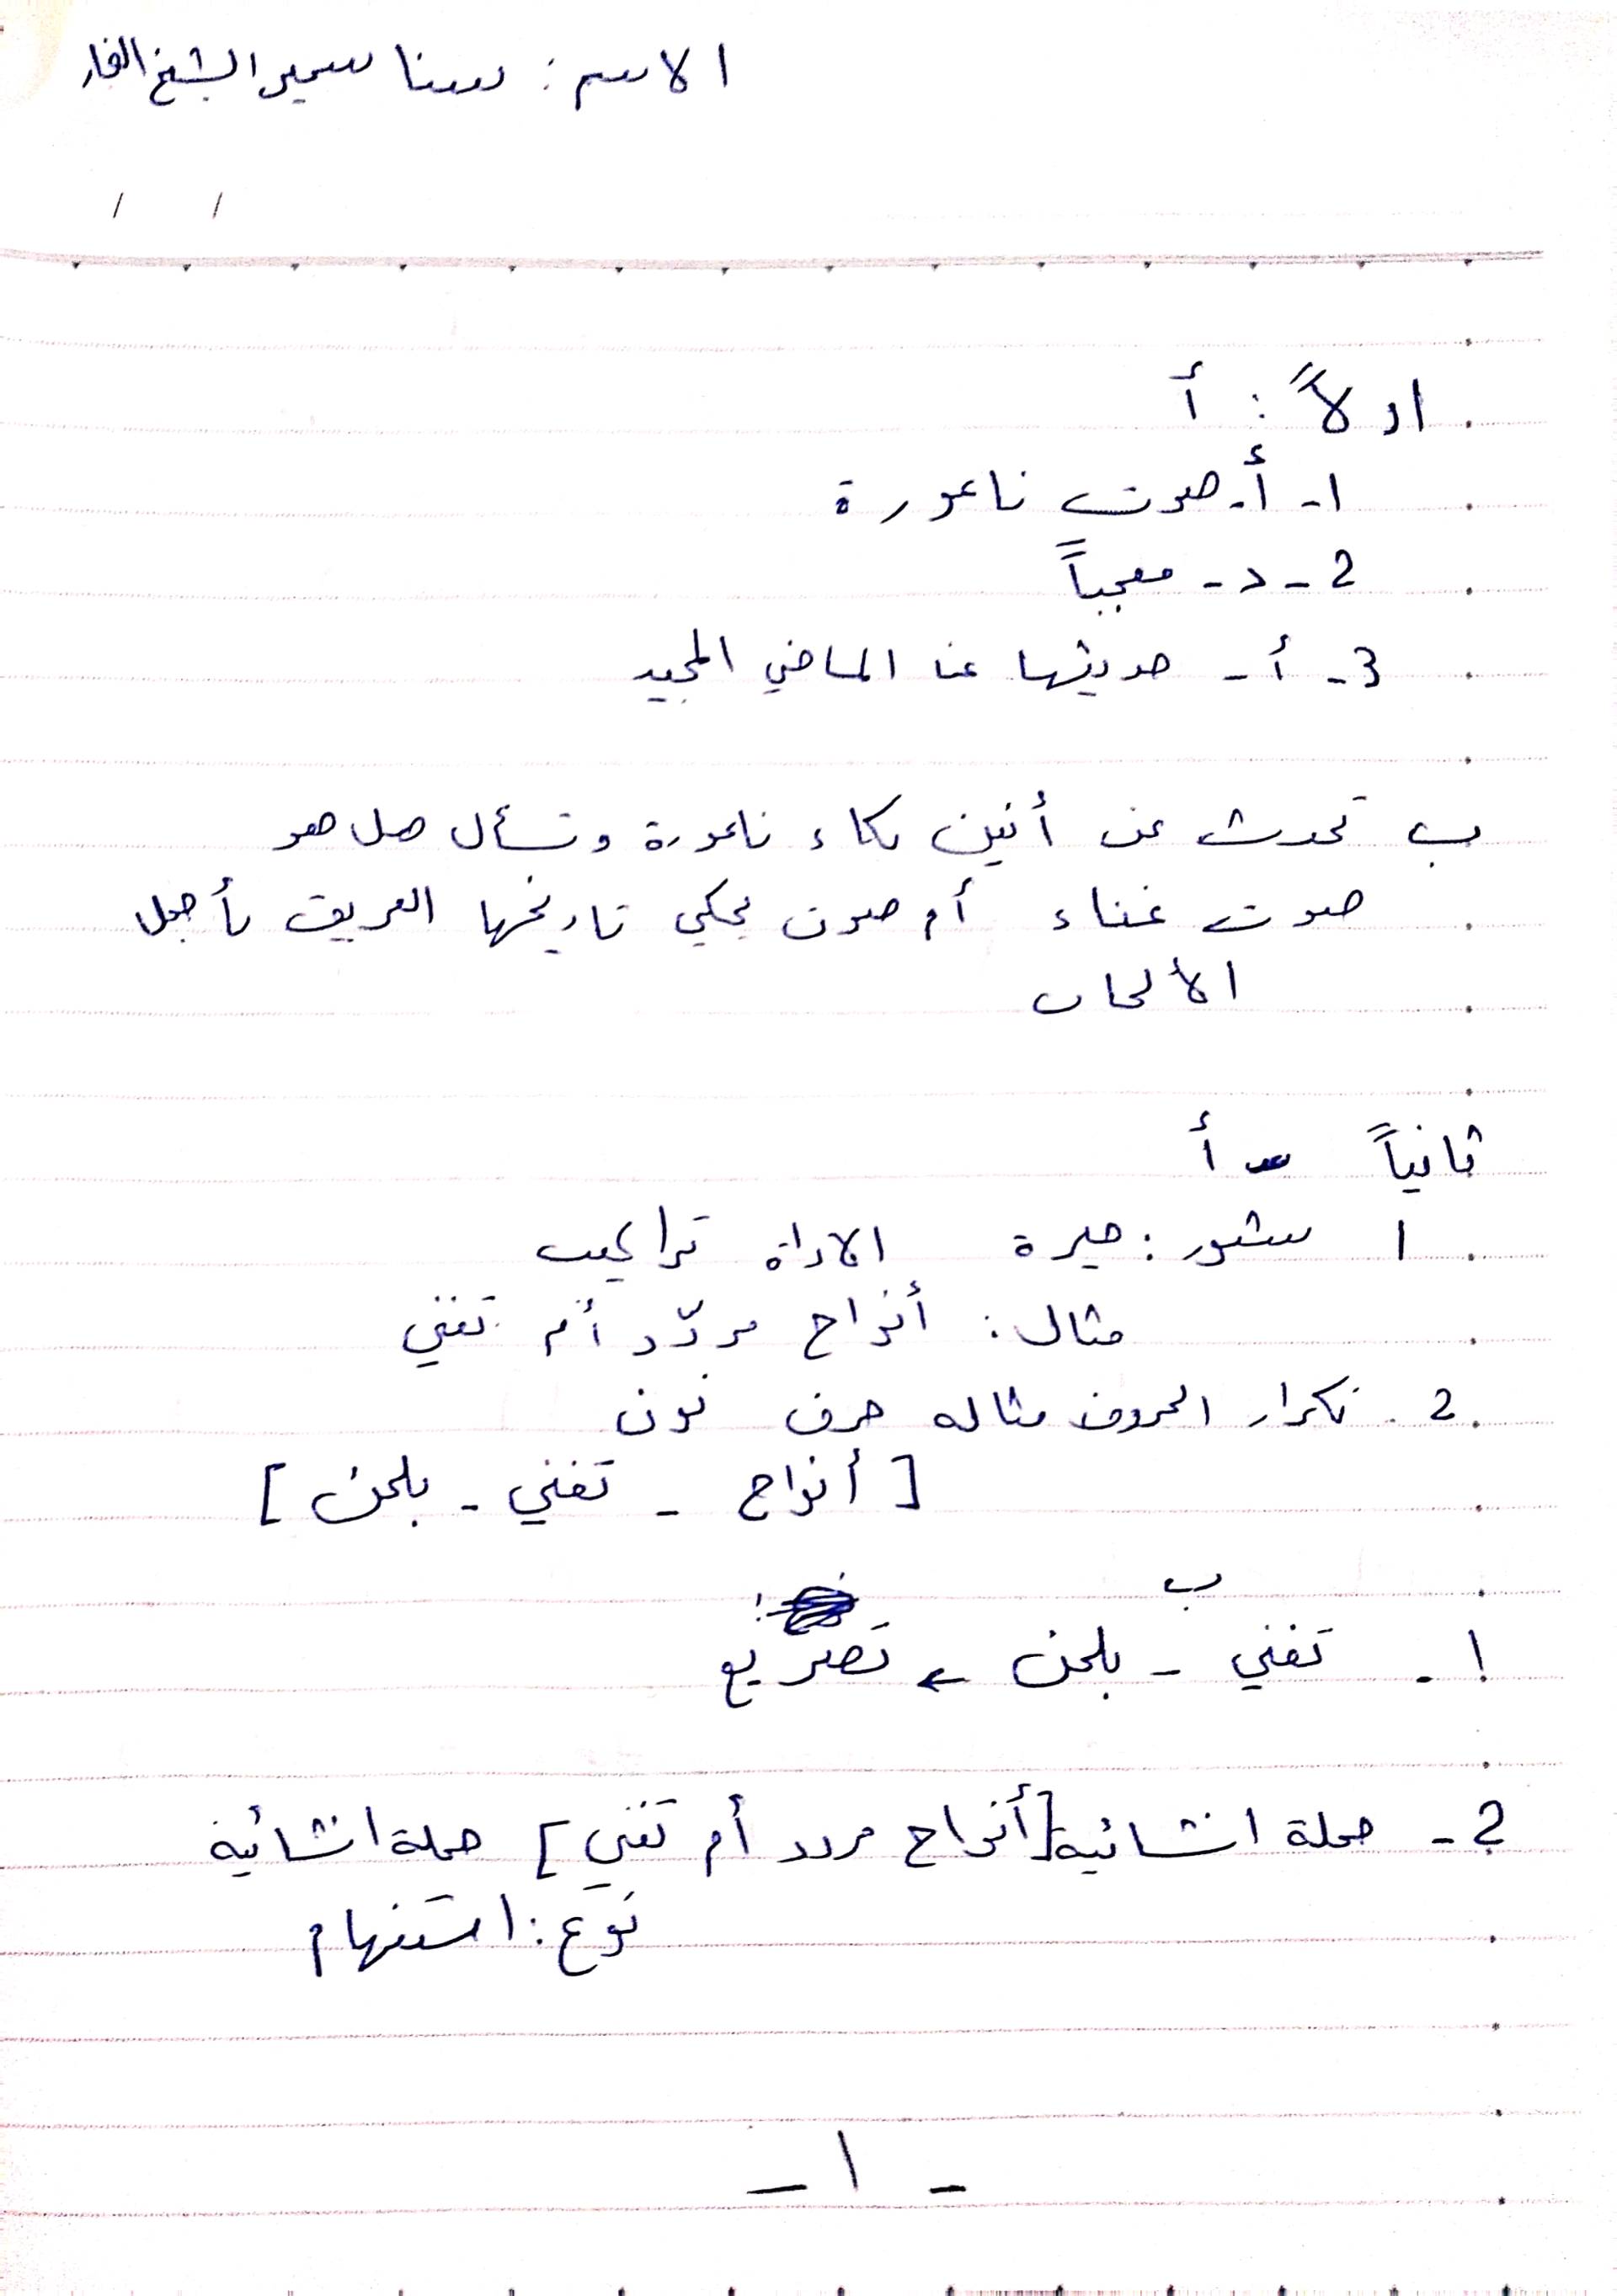 الاسم: سنا سمير الشيخ النجار
/ /
اولاً: أ
1- أ- صوت ناعورة
2- د- معجباً
3- أ- حديثها عنا الماضي المجيد
ب تحدث عن أنين بكاء ناعورة وتسأل هل هو
صوت غناء أم صوت يحكي تاريخها العريق بأجمل
الألحان
ثانياً أ
1 شعور: حيرة الاداة تراكيب
مثال: أنواح مردّد أم تغني
2. تكرار الحروف مثاله حرف نون
[أنواح - تغني - بلحن]
ب
1- تغني - بلحن ← تصريع
2- جملة انشائية [أنواح مردد أم تغني] جملة انشائية
نوع: استفهام
- 1 -